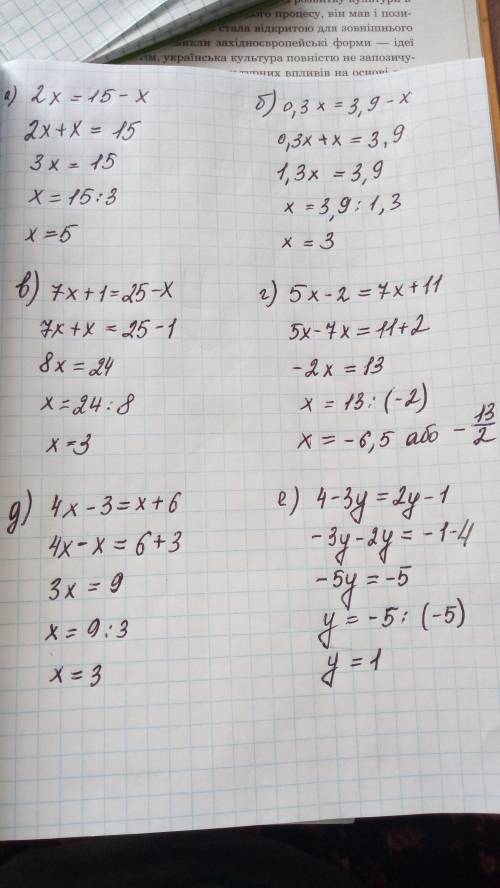 розвитку культури в
ого процесу, він мав і пози-
стала відкритою для зовнішнього
икли західноєвропейські форми — ідеї
їм, українська культура повністю не запозичу-
турних впливів на основі
а) 2x = 15 - x
2x + x = 15
3x = 15
x = 15 : 3
x = 5
б) 0,3x = 3,9 - x
0,3x + x = 3,9
1,3x = 3,9
x = 3,9 : 1,3
x = 3
в) 7x + 1 = 25 - x
7x + x = 25 - 1
8x = 24
x = 24 : 8
x = 3
г) 5x - 2 = 7x + 11
5x - 7x = 11 + 2
-2x = 13
x = 13 : (-2)
x = -6,5 або -13/2
д) 4x - 3 = x + 6
4x - x = 6 + 3
3x = 9
x = 9 : 3
x = 3
е) 4 - 3y = 2y - 1
-3y - 2y = -1 - 4
-5y = -5
y = -5 : (-5)
y = 1